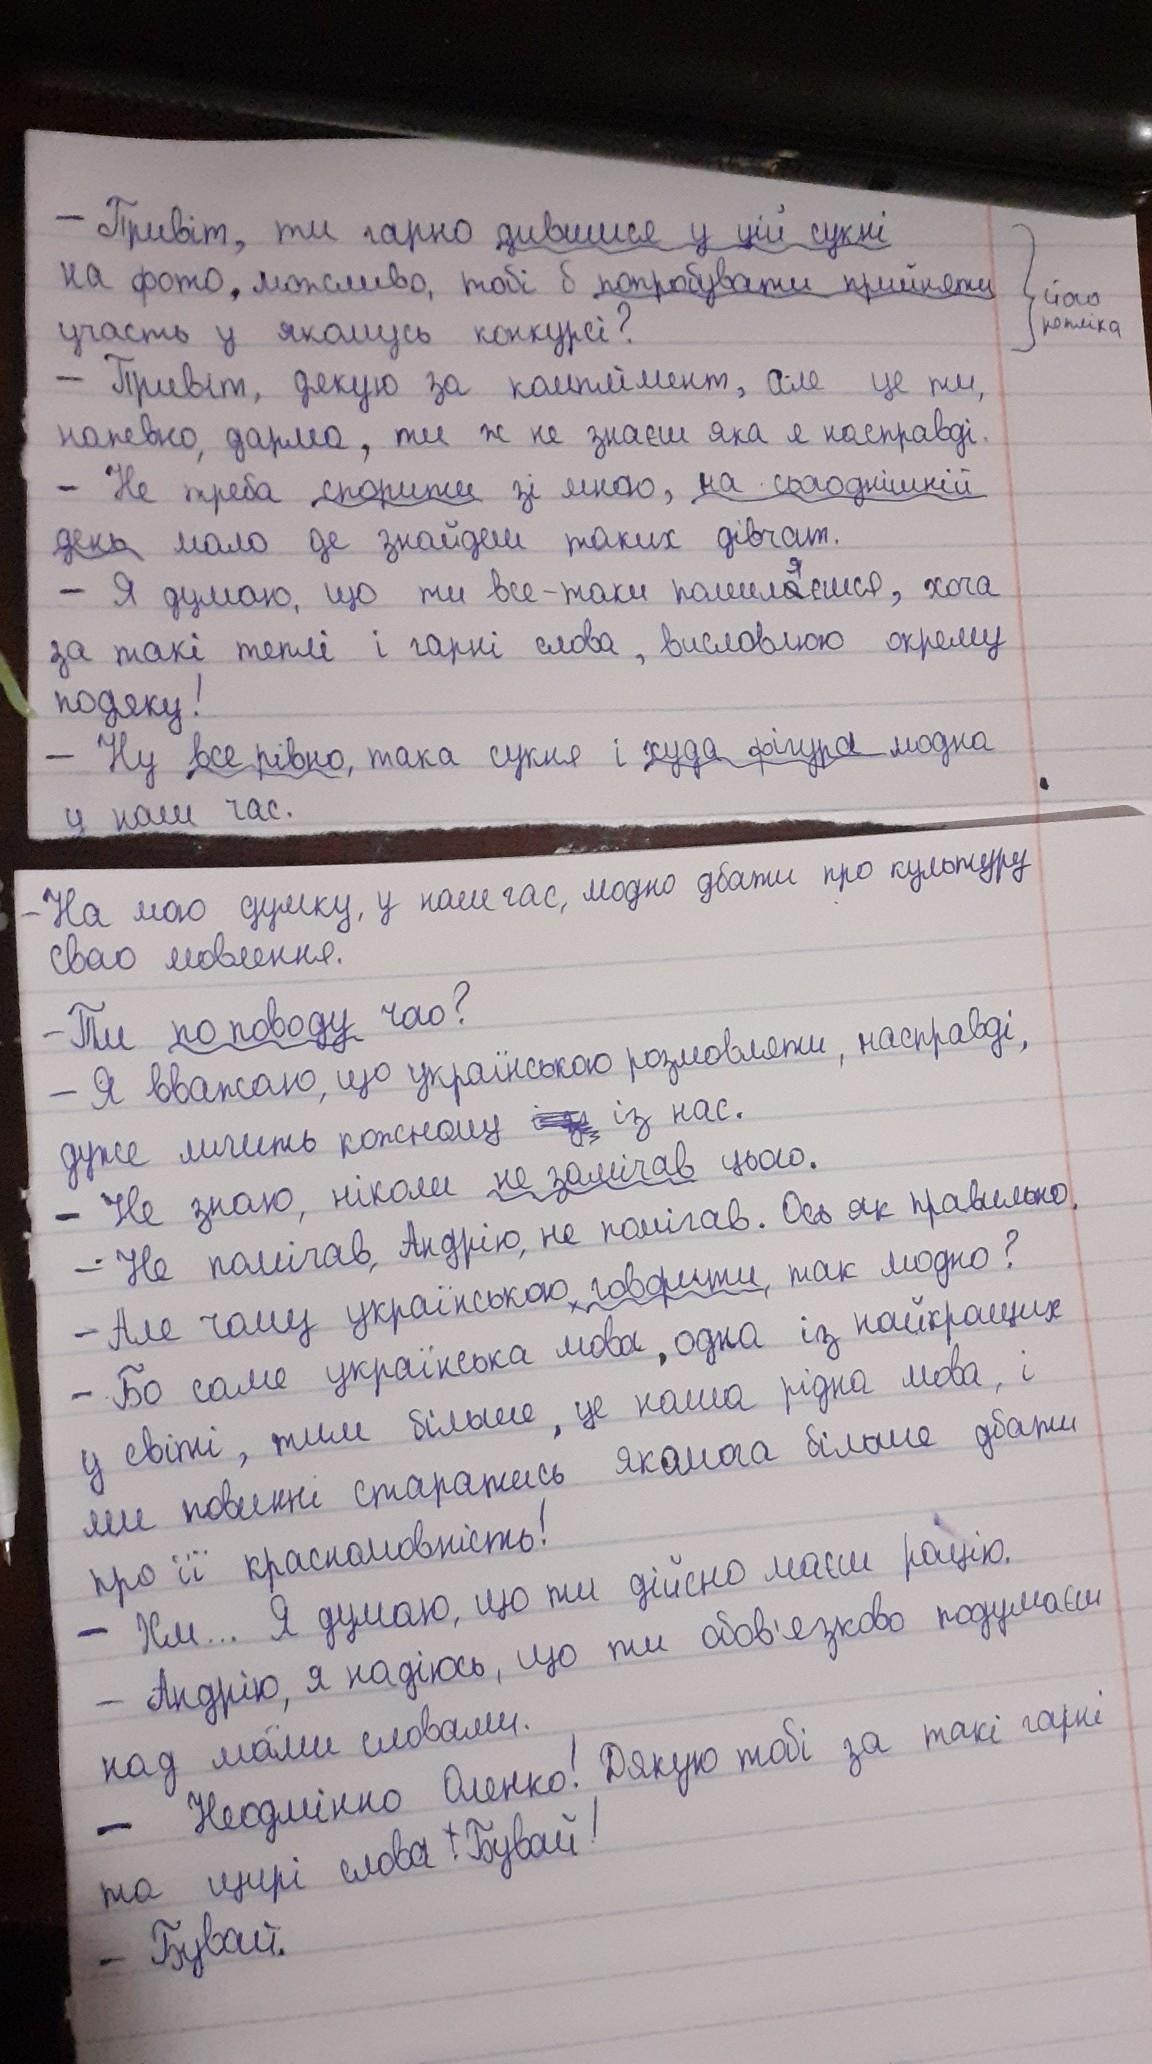 – Привіт, ти гарно дившися у цій сукні
на фото, можливо, тобі б попробувати прийняти
участь у якомусь конкурсі?
його
репліка
– Привіт, дякую за комплімент, але це ти,
напевно, дарма, ти ж не знаєш яка я насправді.
– Не треба спорити зі мною, на сьогоднішній
день мало де знайдеш таких дівчат.
– Я думаю, що ти все-таки помиляєшся, хоча
за такі теплі і гарні слова, висловлюю окрему
подяку!
– Ну все рівно, така сукня і худа фігура модна
у наш час.
– На мою думку, у наш час, модно дбати про культуру
свого мовлення.
– Ти по поводу чого?
– Я вважаю, що українською розмовляти, насправді,
дуже личить кожному із нас.
– Не знаю, ніколи не замічав цього.
– Не помічав, Андрію, не помічав. Ось як правильно.
– Але чому українською говорити, так модно?
– Бо саме українська мова, одна із найкращих
у світі, тим більше, це наша рідна мова, і
ми повинні старатись якомога більше дбати
про її красномовність!
– Хм... Я думаю, що ти дійсно маєш рацію.
– Андрію, я надіюсь, що ти обов'язково подумаєш
над моїми словами.
– Неодмінно Оленко! Дякую тобі за такі гарні
та щирі слова! Бувай!
– Бувай.